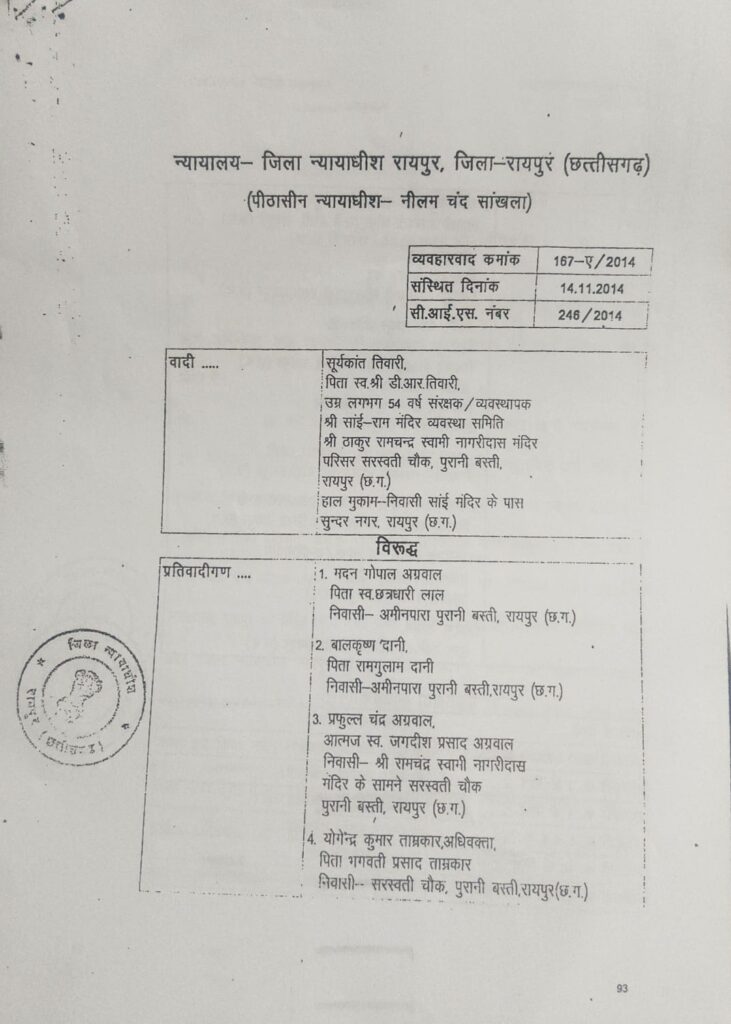 न्यायालय– जिला न्यायाधीश रायपुर, जिला–रायपुर (छत्तीसगढ़)
(पीठासीन न्यायाधीश– नीलम चंद सांखला)
व्यवहारवाद कमांक 167–ए/2014
संस्थित दिनांक 14.11.2014
सी.आई.एस. नंबर 246/2014
वादी ..... सूर्यकांत तिवारी,
पिता स्व.श्री डी.आर.तिवारी,
उम्र लगभग 54 वर्ष संरक्षक/व्यवस्थापक
श्री सांई–राम मंदिर व्यवस्था समिति
श्री ठाकुर रामचन्द्र स्वामी नागरीदास मंदिर
परिसर सरस्वती चौक, पुरानी बस्ती,
रायपुर (छ.ग.)
हाल मुकाम–निवासी सांई मंदिर के पास
सुन्दर नगर, रायपुर (छ.ग.)
विरूद्ध
प्रतिवादीगण .... 1. मदन गोपाल अग्रवाल
पिता स्व.छत्रधारी लाल
निवासी– अमीनपारा पुरानी बस्ती, रायपुर (छ.ग.)
2. बालकृष्ण दानी,
पिता रामगुलाम दानी
निवासी–अमीनपारा पुरानी बस्ती,रायपुर (छ.ग.)
3. प्रफुल्ल चंद्र अग्रवाल,
आत्मज स्व. जगदीश प्रसाद अग्रवाल
निवासी– श्री रामचंद्र स्वामी नागरीदास
मंदिर के सामने सरस्वती चौक
पुरानी बस्ती, रायपुर (छ.ग.)
4. योगेन्द्र कुमार ताम्रकार,अधिवक्ता,
पिता भगवती प्रसाद ताम्रकार
निवासी– सरस्वती चौक, पुरानी बस्ती,रायपुर(छ.ग.)
जिला न्यायाधीश
रायपुर (छत्तीसगढ़)
93